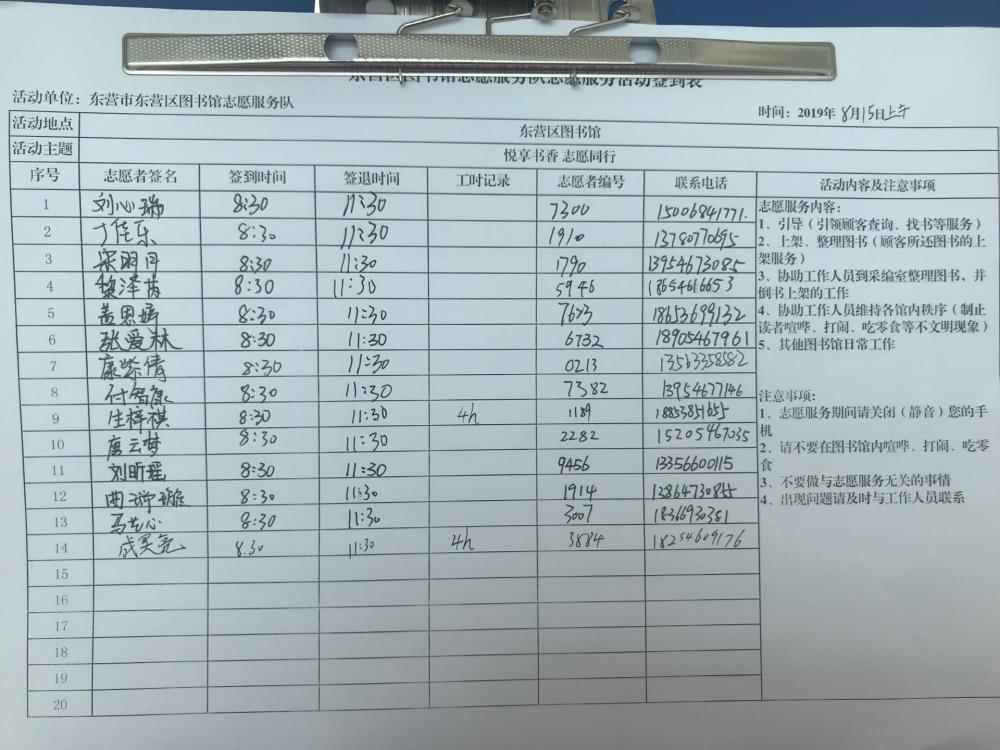 东营区图书馆志愿服务队志愿服务活动签到表
活动单位：东营市东营区图书馆志愿服务队
时间：2019年8月15日上午
活动地点 东营区图书馆
活动主题 悦享书香 志愿同行
序号 志愿者签名 签到时间 签退时间 工时记录 志愿者编号 联系电话 活动内容及注意事项
1 刘心瑞 8:30 11:30 7300 15006841771.
2 丁佳乐 8:30 11:30 1910 13780770695
3 宋明月 8:30 11:30 1790 13954673085
4 黎泽茵 8:30 11:30 5946 18654616653
5 盖恩娉 8:30 11:30 7623 18653699132
6 张爱林 8:30 11:30 6732 18905467961
7 康紫倩 8:30 11:30 0213 13563358582
8 付智康 8:30 11:30 7382 13954677146
9 生梓祺 8:30 11:30 4h 1189 18853851655
10 唐云梦 8:30 11:30 2282 15205467035
11 刘昕瑶 8:30 11:30 9456 13356600115
12 曲璇 8:30 11:30 1914 12864730855
13 马艺心 8:30 11:30 3007 18366930381
14 成昊亮 8:30 11:30 4h 3884 18254609176
15
16
17
18
19
20
志愿服务内容：
1、引导（引领顾客查询、找书等服务）
2、上架、整理图书（顾客所还图书的上
架服务）
3、协助工作人员到采编室整理图书，并
倒书上架的工作
4、协助工作人员维持各馆内秩序（制止
读者喧哗、打闹、吃零食等不文明现象）
5、其他图书馆日常工作
注意事项：
1、志愿服务期间请关闭（静音）您的手
机
2、请不要在图书馆内喧哗、打闹、吃零
食
3、不要做与志愿服务无关的事情
4、出现问题请及时与工作人员联系